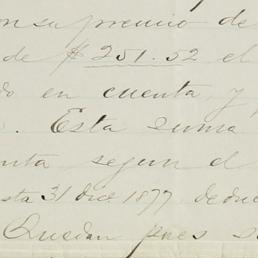 on su premio de
de $251.52 el
do en cuenta y
. Esta suma
nta segun el
sta 31 dice 1877 deduc
Quedan pues s